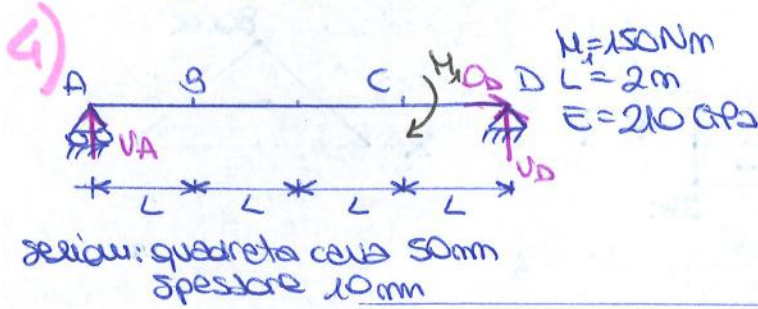 4)
A B C M₁ O_D D M₁=150Nm
L = 2m
E = 210 GPa
V_A V_D
L L L L
sezioni: quadrata cava 50mm
spessore 10mm